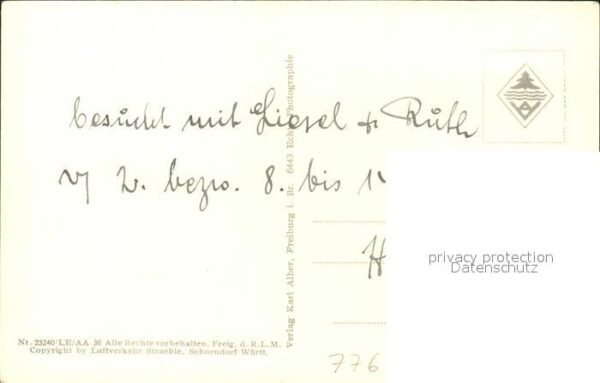 besucht mit Liesel + Ruth
bezw. 8. bis
H
privacy protection
Datenschutz
Verlag Karl Alber, Freiburg i. Br. 6443 Echte Photographie
Nr. 23240/LE/AA 36 Alle Rechte vorbehalten. Freig. d. R.L.M.
Copyright by Luftverkehr Straehle, Schorndorf Württ.
776